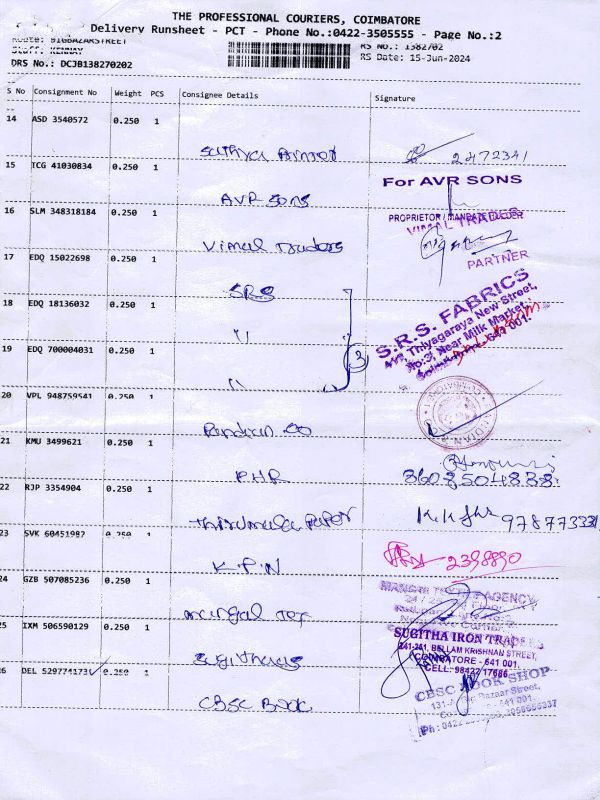 THE PROFESSIONAL COURIERS, COIMBATORE
Delivery Runsheet - PCT - Phone No.:0422-3505555 - Page No.:2
Route: BIGBAZARSTREET
Staff: KENNAY
RS No.: 1382702
DRS No.: DCJB138270202
RS Date: 15-Jun-2024
S No Consignment No Weight PCS Consignee Details Signature
14 ASD 3540572 0.250 1
2472341
15 TCG 41030834 0.250 1
For AVR SONS
AVR Sons
16 SLM 348318184 0.250 1
PROPRIETOR / MANAGER
VIMAL TRADERS
Vimal Traders
PARTNER
17 EDQ 15022698 0.250 1
SRS
S.R.S. FABRICS
Thiyagaraya New Street,
18 EDQ 18136032 0.250 1
No:3, Near Milk Market,
"
641 001.
3
19 EDQ 700004031 0.250 1
"
20 VPL 948759541 0.250 1
Pandian
21 KMU 3499621 0.250 1
PHR
22 RJP 3354904 0.250 1
Thirumala Paper
23 SVK 60451987 0.250 1
2398890
K.P.N
24 GZB 507085236 0.250 1
AGENCY
mangal Tex
25 IXM 506590129 0.250 1
SUGITHA IRON TRADERS
241-251, BELLAM KRISHNAN STREET,
COIMBATORE - 641 001.
CELL: 98422 17686
26 DEL 529774173 0.250 1
CBSC BOOK SHOP
Bazaar Street,
641 001.
CBSC Book
Ph: 0422